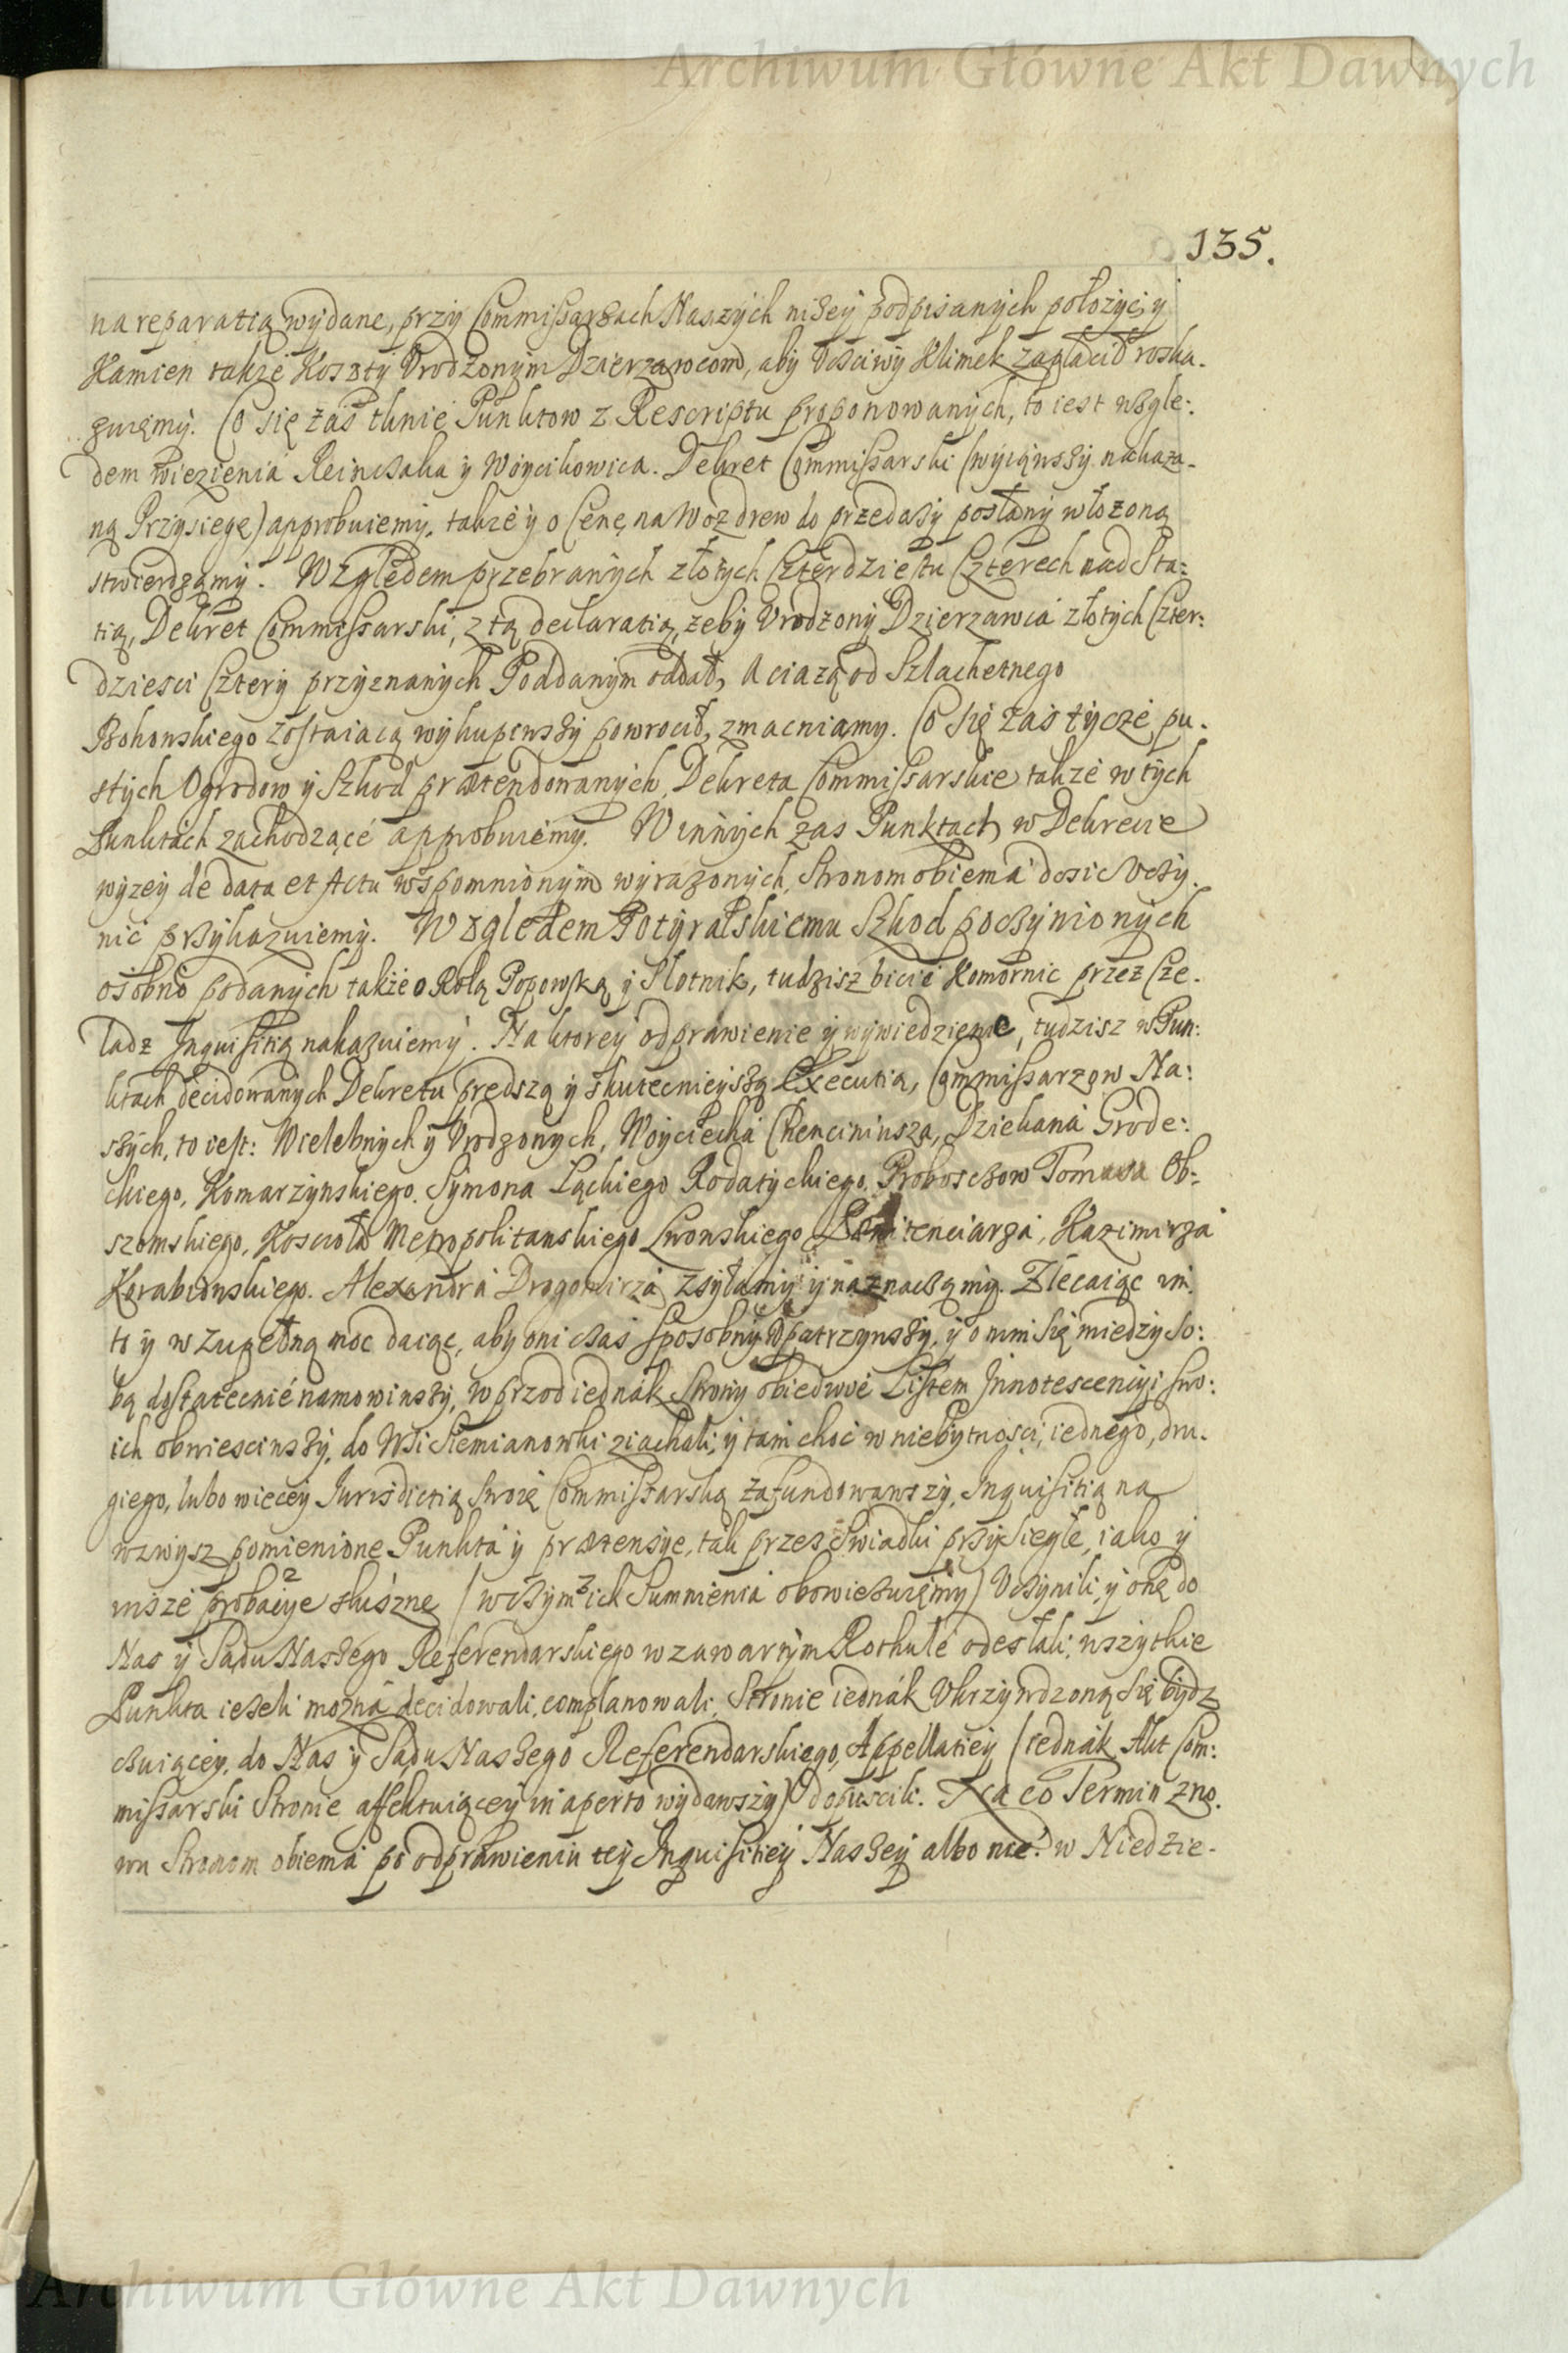 Archiwum Główne Akt Dawnych
135.
na reparatią wydane, przy Commissarzach Naszych niżey podpisanych położyć, y
Kamien także Koszty Vrodzonym Dzierzawcom, aby Vcciwy Klimek zapłacił roska-
zuięmy. Co się zaś tknie Punktow z Rescriptu proponowanych, to iest wzglę:
dem więzienia Reinczaka y Woycikowica. Dekret Commissarski (wyiąwszy nakaza-
ną Przysięgę) approbuiemy, także y o Cenę na Woz drew do przedaży posłany włożoną
stwierdzamy. Względem przebranych złotych Czterdziestu Czterech nad Sta:
tią, Dekret Commissarski, z tą declaratią, żeby Vrodzony Dzierzawca złotych Czter:
dziesci Cztery przyznanych Poddanym oddał, a ciążą od Szlachetnego
Bohonskiego zostaiącą wykupiwszy powrocił, zmacniamy. Co się zaś tycze pu-
stych Ogrodow y Szkod prætendowanych, Dekreta Commissarskie także w tych
Punktach zachodzące approbuiemy. W innych zas Punktach w Dekrecie
wyzey de data et Actu wspomnionym wyrażonych, Stronom obiema dosic vczy-
nić przykazuiemy. Względem Potyralskiemu Szkod poczynionych
osobno podanych także o Rolą Popowską y Płotnik, tudzisz bicie Komornic przez Cze-
ladz Inquisitią nakazuiemy. Na ktorey odprawienie y wywiedzienie, tudzisz w Pun:
ktach decidowanych Dekretu prędszą y skutecnieyszą Executią, Commissarzow Na:
szych, to iest: Wielebnych y Vrodzonych, Woyciecha Chenciniusza, Dziekana Grode:
ckiego, Komarzynskiego. Symona Łąckiego Rodatyckiego, Proboszczow Tomasza Ob-
szomskiego, Koscioła Metropolitanskiego Lwowskiego Pœnitenciarza, Kazimirza
Korabiowskiego. Alexandra Drogomirza zsyłamy y naznaczamy. Zlecaiąc im
to y w zupełną moc daiąc, aby oni czas sposobny vpatrzywszy, y o nim się między so:
bą dostatecnie namowiwszy, w przod iednak Strony obiedwie Listem Innotescencyi swo:
ich obwiesciwszy, do Wsi Siemianowki ziachali, y tam choć w niebytnosci, iednego, dru-
giego, lubo więcey Iurisdictią swoię Commissarską zafundowawszy, Inquisitią na
wzwysz pomienione Punkta y prætensye, tak przez Swiadki przysięgłe, iako y
insze probacye słuszne (w czym ich Sumnienia obowiezuięmy) Vczynili, y onę do
Nas y Sądu Naszego Referendarskiego w zawartym Rothule odesłali, wszytkie
Punkta iezeli można decidowali, complanowali, Stronie iednak Vkrzywdzoną się bydz
czuiącey, do Nas y Sądu Naszego Referendarskiego, Appellatiey (iednak Akt Com:
missarski Stronie affektuiącey in aperto wydawszy) dopuscili. Na co Termin zno-
wu Stronom obiema po odprawieniu tey Inquisitiey Naszey albo nie: w Niedzie-
Archiwum Główne Akt Dawnych